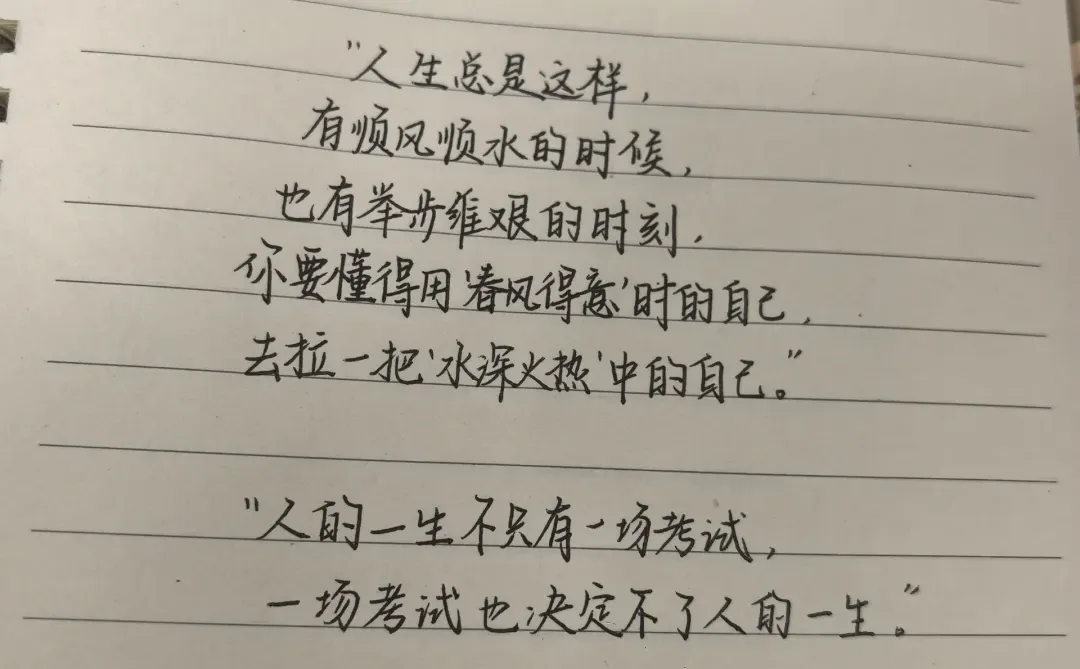 "人生总是这样，
有顺风顺水的时候，
也有举步维艰的时刻，
你要懂得用'春风得意'时的自己，
去拉一把'水深火热'中的自己。"
"人的一生不只有一场考试，
一场考试也决定不了人的一生。"